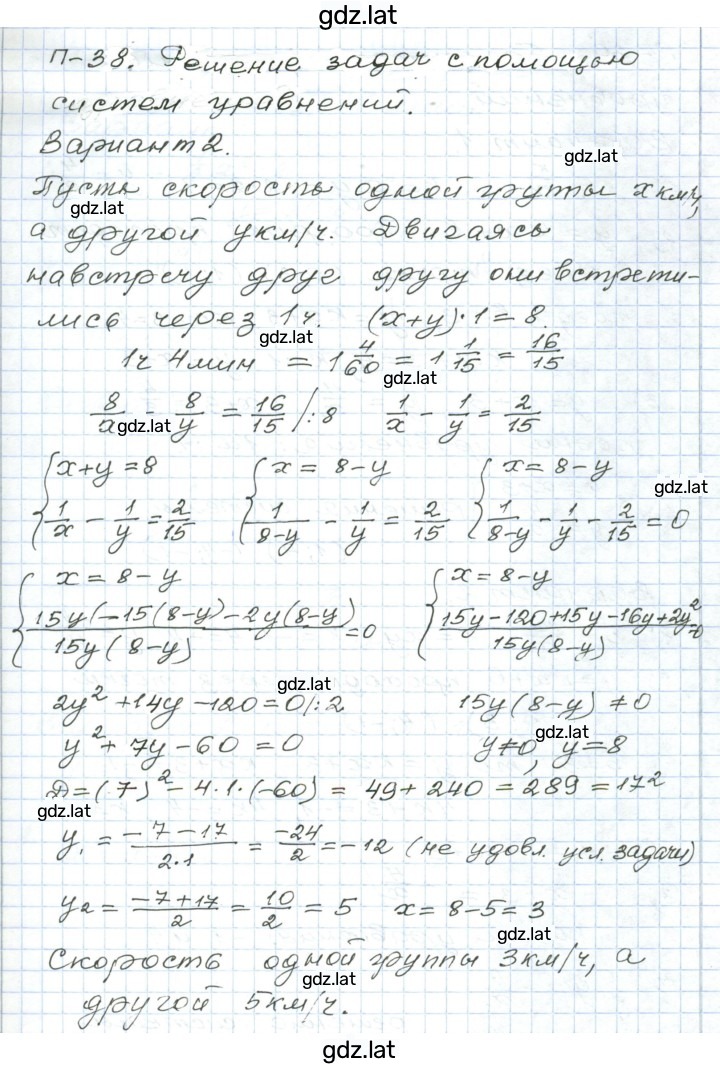 gdz.lat
П-38. Решение задач с помощью
систем уравнений.
Вариант 2.
gdz.lat
Пусть скорость одной группы x км/ч,
gdz.lat
а другой y км/ч. Двигаясь
навстречу друг другу они встрети-
лись через 1ч. (x+y)·1=8
gdz.lat
1ч 4мин = 1 4/60 = 1 1/15 = 16/15
gdz.lat
8/x - 8/y = 16/15 /:8 1/x - 1/y = 2/15
gdz.lat
{x+y=8 {x = 8-y {x = 8-y
gdz.lat
1/x - 1/y = 2/15 1/(8-y) - 1/y = 2/15 1/(8-y) - 1/y - 2/15 = 0
{x = 8-y {x = 8-y
(15y(-15(8-y)-2y(8-y))/(15y(8-y)) = 0 (15y-120+15y-16y+2y²)/(15y(8-y)) = 0
gdz.lat
2y²+14y-120=0/:2 15y(8-y)≠0
gdz.lat
y²+7y-60=0 y≠0, y=8
Д=(7)²-4·1·(-60) = 49+240 = 289 = 17²
gdz.lat
y₁ = (-7-17)/(2·1) = -24/2 = -12 (не удовл. усл. задачи)
y₂ = (-7+17)/2 = 10/2 = 5 x = 8-5 = 3
gdz.lat
Скорость одной группы 3км/ч, а
gdz.lat
другой 5км/ч.
gdz.lat